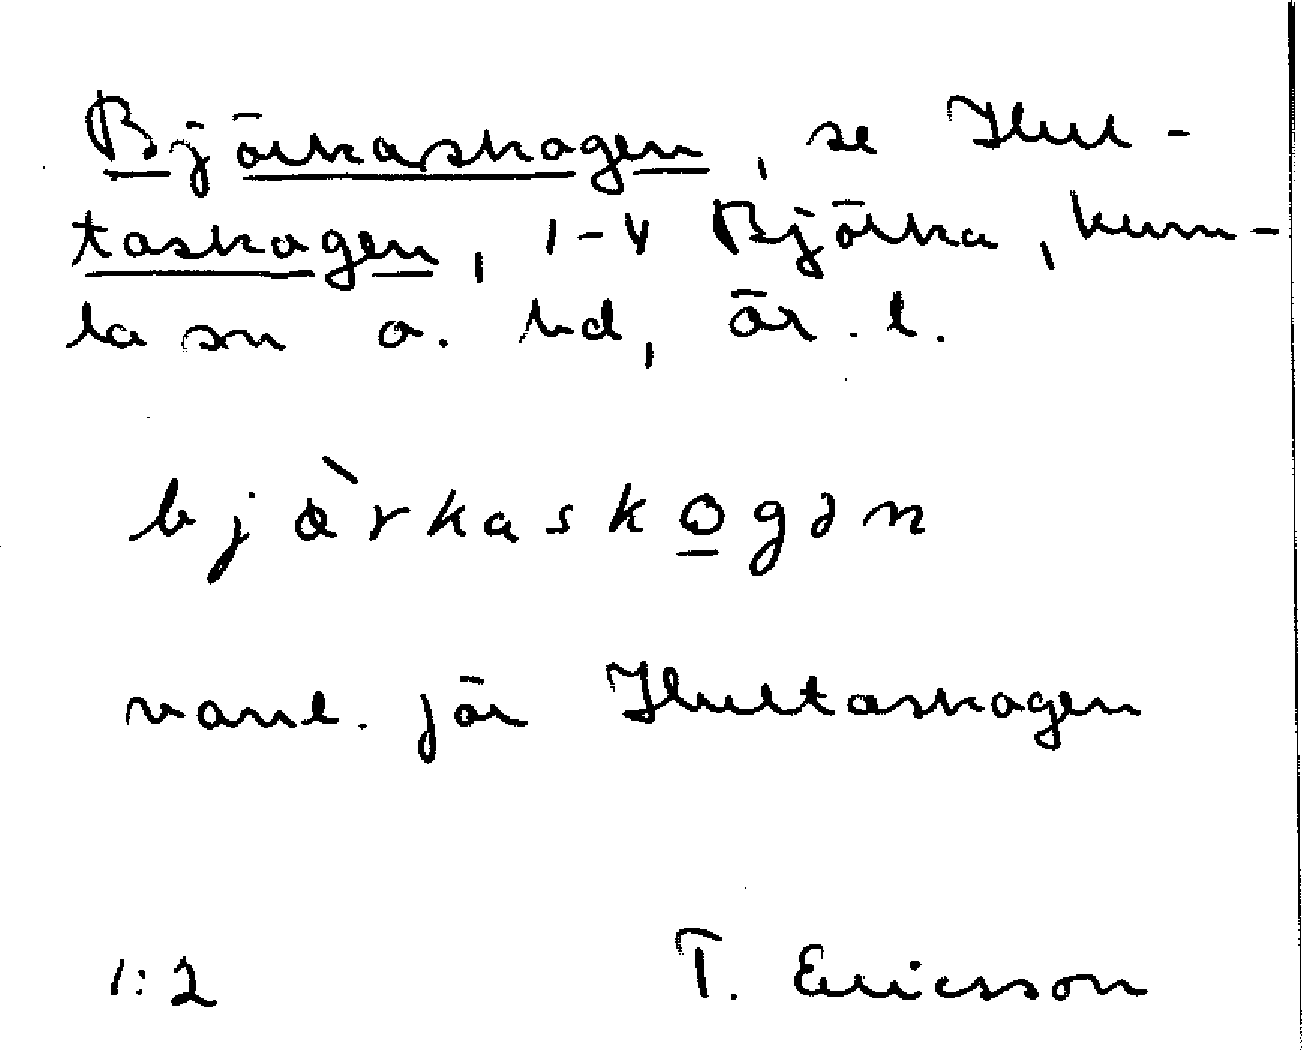 Björkaskogen, se Hul-
taskogen, 1-4 Björka, Kum-
la sn o. hd, Ör. l.
bj̀ɑrkaskogən
vanl. för Hultaskogen
1:2 T. Ericsson